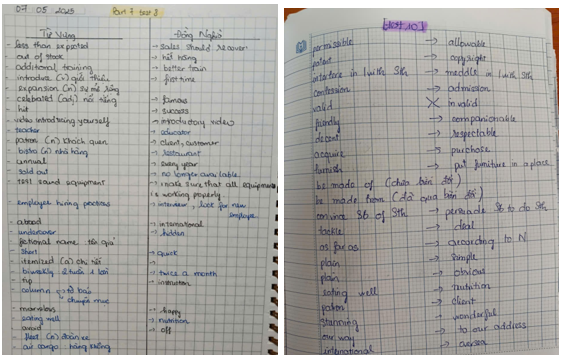 07 05 2025 Part 7 test 8
Từ Vựng Đồng Nghĩa
- less than expected → sales should recover
- out of stock → hết hàng
- additional training → better train
- introduce (v) giới thiệu → first time
- expansion (n) sự mở rộng
- celebrated (adj) nổi tiếng → famous
- hit → success
- video introducing yourself → introductory video
- teacher → educator
- patron (n) khách quen → client, customer
- bistro (n) nhà hàng → restaurant
- annual → every year
- sold out → no longer available
- test sound equipment → make sure that all equipment
is working properly
- employee hiring process → interview, look for new
employee
- aboad → international
- undercover → hidden
- fictional name tên giả
- short → quick
- itemized (a) chi tiết →
- biweekly 2 tuần 1 lần → twice a month
- tip → instruction
- column → tờ báo
chuyên mục
- marvelous → happy
- eating well → nutrition
- → off
- fleet (n) đoàn xe
- air cargo hàng không
[Test 10]
permissable → allowable
patent → copyright
interfere in / with Sth → meddle in / with Sth
confession → admission
valid X invalid
friendly → companionable
decent → respectable
acquire → purchase
furnish → put furniture in a place
be made of (chưa biến đổi)
be made from (đã qua biến đổi)
convince Sb of Sth → persuade Sb to do Sth
tackle → deal
as far as → according to N
plain → simple
plain → obvious
eating well → nutrition
patron → client
stunning → wonderful
our way → to our address
international → oversea